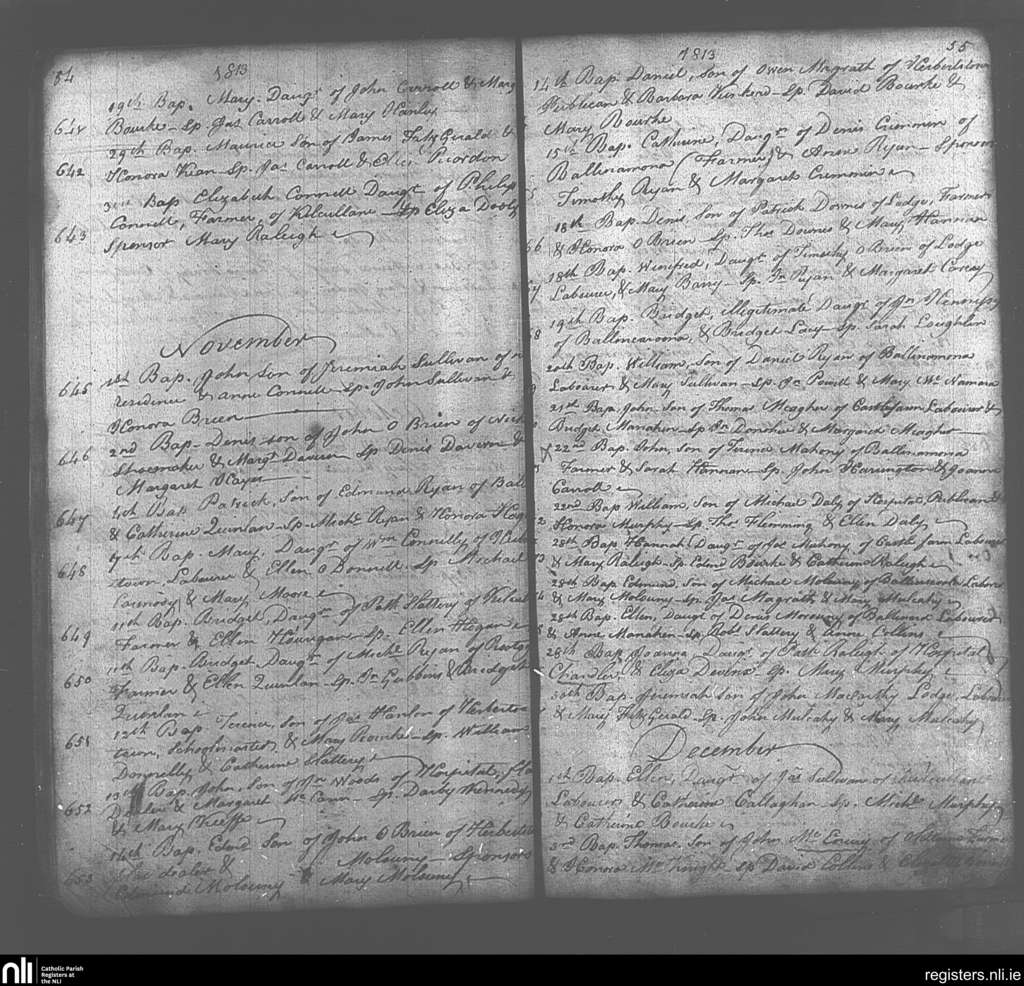 54
1813
19th Bap. Mary. Daugr of John Carroll & Mary
641 Bourke - Sp. Jas Carroll & Mary Hanly
29th Bap. Maurice Son of James FitzGerald &
642 Honora Kean - Sp. Jas Carroll & Riordon
31st Bap Elizabeth Connell Daugt of Philip
Connell, Farmer, of Kilcullane Sp Eliza Dooly
643 Sponsor Mary Raleigh
November
645 1st Bap. John Son of Jeremiah Sullivan of
residence & Anne Connell - Sp. John Sullivan &
Honora Breen
2nd Bap - Denis son of John O Brien of
646 Shoemaker & Margt Daveren Sp Denis Daveren &
Margaret Hayes
4th Bap Patrick, Son of Edmund Ryan of
647 & Catherine Quinlan - Sp - Michl Ryan & Honora
7th Bap. Mary, Daugr of Wm Connelly of
648 town, Labourer & Ellen O Donnell Sp Michael
Carmody & Mary Moore
11th Bap. Bridget, Daugr of Patt Slattery of
649 Farmer & Ellen Hourigan - Sp. Ellen Hogan
11th Bap - Bridget Daugr of Michl Ryan of
650 Farmer & Ellen Quinlan - Sp. Jn Gubbins & Bridget
Quinlan
12th Bap Terence, Son of Jas Hanlon of Herberts
651 town, Schoolmaster & Mary - Sp. William
Donnelly & Catherine Slattery
13th Bap. John, Son of Jn Woods of Hospital,
652 Dealer & Margaret Mc Cann - Sp. Darby Kennedy
& Mary Keeffe
14th Bap. Edmd Son of John O Brien of Herbertst
653 &
Edmund Molouny & Mary Molouny
Molouny - Sponsors
55
1813
14th Bap. Daniel, Son of Owen Magrath of Herbertstown
Publican & Barbara - Sp. David Bourke &
Mary Bourke
15th Bap. Catherine, Daugr of Denis Crimmin of
Ballinamona (Farmer) & Anne Ryan - Sponsor
Timothy Ryan & Margaret Crimmin
18th Bap. Denis, Son of Patrick Downes of Lodge, Farmer
& Honora O Brien - Sp. Thos Downes & Mary Hannan
18th Bap. Winifred, Daugt of Timothy O Brien of Lodge
Labourer, & Mary Barry - Sp. Jn Ryan & Margaret Carey
19th Bap. Bridget, illegitimate Daugt of Jn Hennessy
of & Bridget Lacy - Sp. Sarah Loughlin
20th Bap. William, Son of Daniel Ryan of Ballinamona
Labourer & Mary Sullivan - Sp. Powell & Mary Mc Namara
21st Bap. John, Son of Thomas Meagher of Castlefarm Labourer &
Bridget Manahen - Sp Donohue & Margaret Meagher
X 22nd Bap. John, Son of Terence Mahony of Ballinamona
Farmer & Sarah Hannan - Sp. John Harrington & Joanna
Carroll
22nd Bap William, Son of Michael Daly of Hospital Publican &
Honora Murphy - Sp Thos Flemming & Ellen Daly
28th Bap. Hannah Daugr of Jas Mahony of Castle farm Labourer
& Mary Raleigh - Sp. Edmd Bourke & Catherine Raleigh
28th Bap Edmund, Son of Michael Molouny of Labourer
& Mary Molouny - Sp. Jas Magrath & Mary Mulcahy
28th Bap. Ellen, Daugr of Denis of Labourer
& Anne Monahen - Sp. Robt Slattery & Anne Collins
28th Bap Joanna, Daugr of Patt Raleigh of Hospital
Chandler, & Eliza Devine Sp. Mary Murphy
30th Bap. Jeremiah Son of John MacCarthy Lodge, Labourer
& Mary FitzGerald - Sp. John Mulcahy & Mary Mulcahy
December
1st Bap. Ellen, Daugr of Jas Sullivan of
Labourer & Catherine Callaghan - Sp. Michl Murphy
& Catherine Bourke
3rd Bap. Thomas, Son of John of
& Honora Mc Knight Sp David Collins &
nli
Catholic Parish
Registers at
the NLI
registers.nli.ie